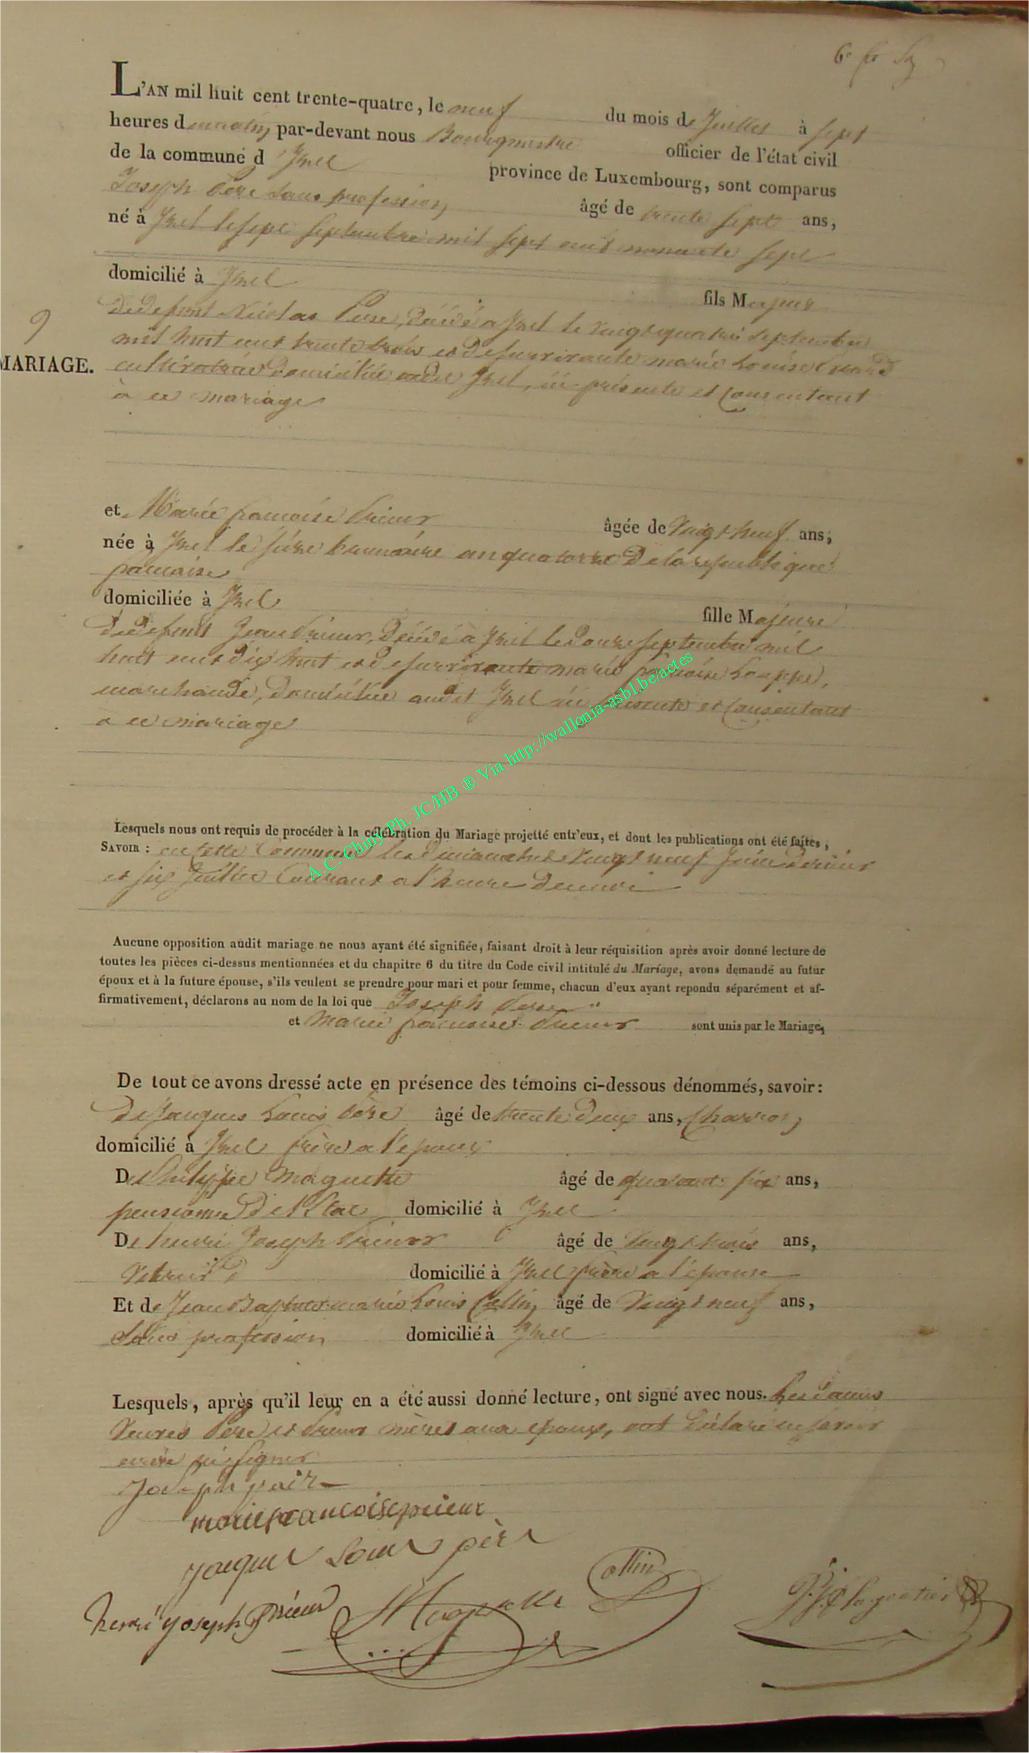 L'AN mil huit cent trente-quatre, le neuf du mois de Juillet à sept
heures du matin, par-devant nous Bourgmestre officier de l'état civil
de la commune d'Izel province de Luxembourg, sont comparus
Joseph Père sans profession, âgé de trente sept ans,
né à Izel le sept septembre mil sept cent nonante sept
domicilié à Izel fils Majeur
de defunt Nicolas Père, décédé a Izel le vingt quatre septembre
mil huit cent trente trois et de survivante marie Louise
9
MARIAGE.
cultivatrice domiciliée audit Izel, ici présente et consentant
à ce mariage
et Marie francoise Prieur âgée de Vingt neuf ans,
née à Izel le brumaire an quatorze De la republique
francaise
domiciliée à Izel fille Majeure
de defunt Jean Prieur, Décédé à Izel le douze septembre mil
huit cent dix huit et de survivante marie francoise
marchande, domiciliée audit Izel ici présente et consentant
a ce mariage
A.C-Chiny Ph. JC/HB ® Via http://wallonia-asbl.be/actes
Lesquels nous ont requis de procéder à la célébration du Mariage projetté entr'eux, et dont les publications ont été faites,
SAVOIR : en cette Commune les Dimanches Vingt neuf Juin Dernier
et six Juillet Courant a l'heure de midi
Aucune opposition audit mariage ne nous ayant été signifiée, faisant droit à leur réquisition après avoir donné lecture de
toutes les pièces ci-dessus mentionnées et du chapitre 6 du titre du Code civil intitulé du Mariage, avons demandé au futur
époux et à la future épouse, s'ils veulent se prendre pour mari et pour femme, chacun d'eux ayant repondu séparément et af-
firmativement, déclarons au nom de la loi que Joseph Père
et Marie francoise Prieur sont unis par le Mariage,
De tout ce avons dressé acte en présence des témoins ci-dessous dénommés, savoir:
De Jacques Louis Père âgé de trente deux ans, Charron,
domicilié à Izel frère a l'epoux
De Philippe Maquette âgé de quarante six ans,
pensionné De l'Etat domicilié à Izel
De henri Joseph Prieur âgé de Vingt trois ans,
domicilié à Izel frère a l'épouse
Et de Jean Baptiste marie Louis Collin, âgé de Vingt neuf ans,
Sans profession domicilié à Izel
Lesquels, après qu'il leur en a été aussi donné lecture, ont signé avec nous. Les Dames
Veuves Père et Prieur mères aux epoux, ont Déclaré ne savoir
ecrire ni signer
Joseph pair
marie francoise prieur
jacque Louis père
Collin
henri joseph Prieur